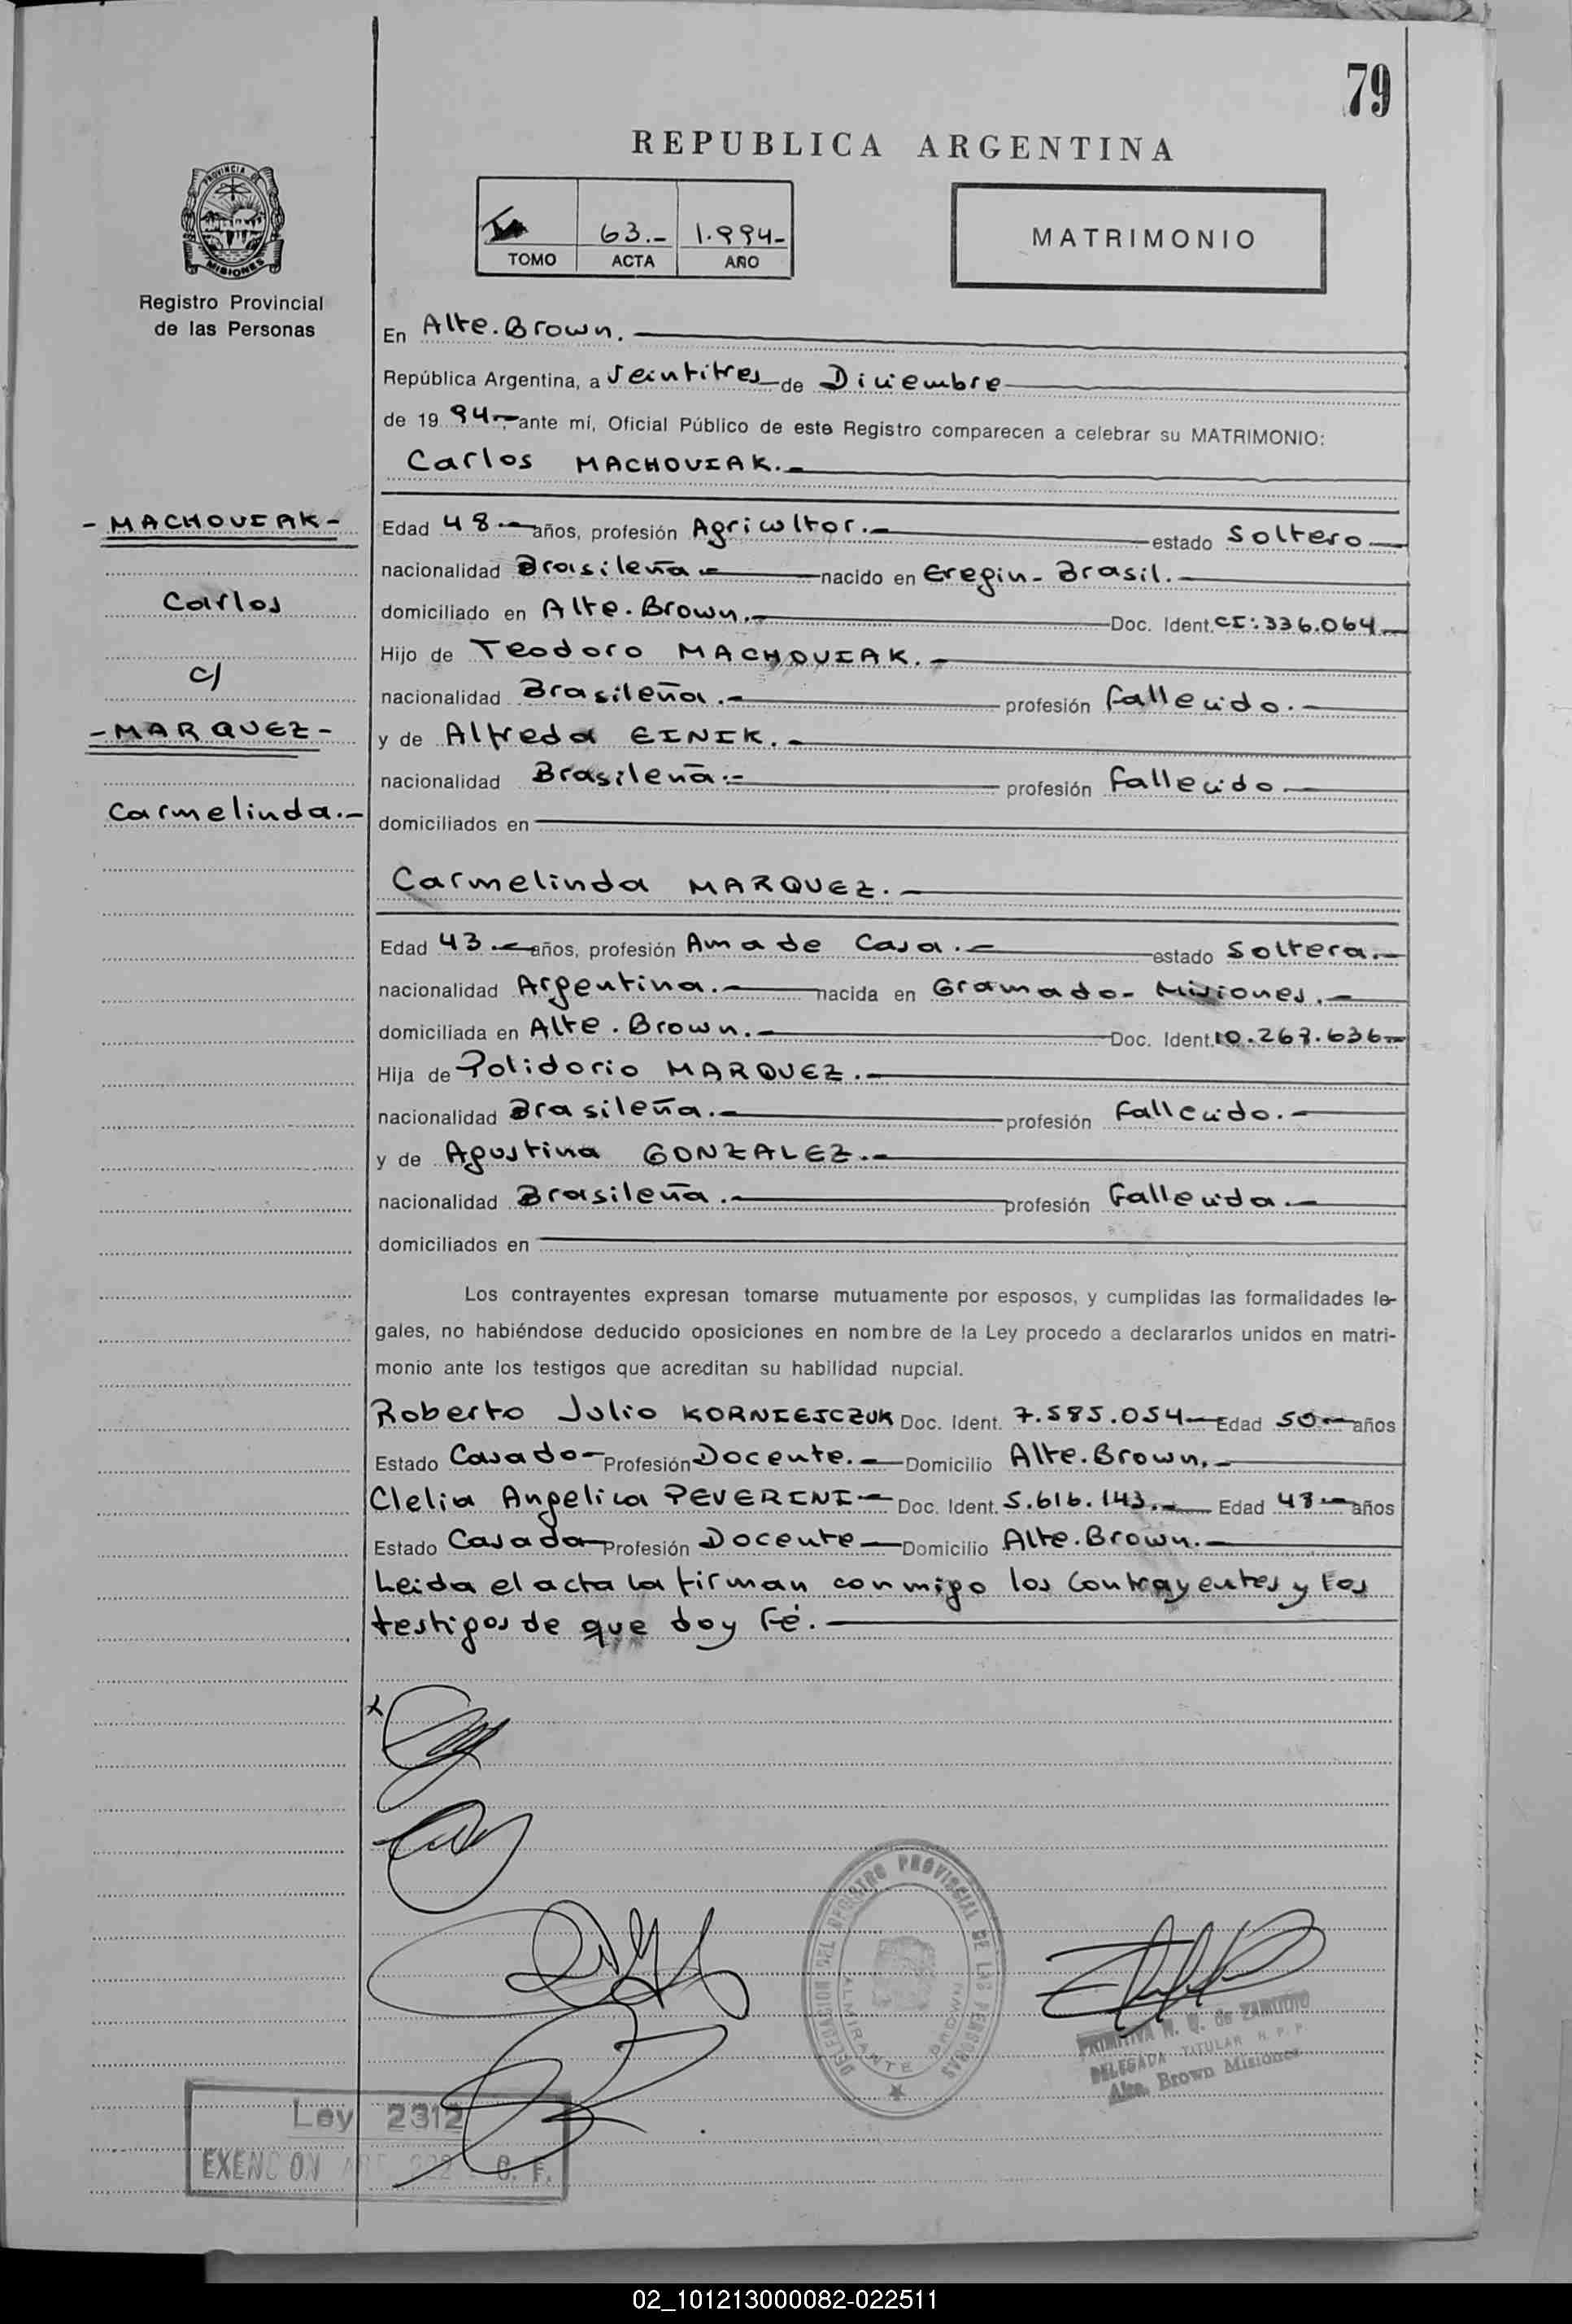 79
REPUBLICA ARGENTINA
PROVINCIA DE
MISIONES
63.- 1.994-
TOMO ACTA AÑO
MATRIMONIO
Registro Provincial
de las Personas
En Alte. Brown.
República Argentina, a veintitres de Diciembre
de 19 94.- ante mí, Oficial Público de este Registro comparecen a celebrar su MATRIMONIO:
Carlos MACHOVIAK.-
- MACHOVIAK -
Carlos
c/
- MARQUEZ -
Carmelinda.-
Edad 48.- años, profesión Agricultor.- estado Soltero
nacionalidad Brasileña.- nacido en Eregin - Brasil.-
domiciliado en Alte. Brown.- Doc. Ident. CI: 336.064
Hijo de Teodoro MACHOVIAK.-
nacionalidad Brasileña.- profesión fallecido.-
y de Alfreda EINIK.-
nacionalidad Brasileña.- profesión fallecido
domiciliados en
Carmelinda MARQUEZ.-
Edad 43.- años, profesión Ama de Casa.- estado Soltera.-
nacionalidad Argentina.- nacida en Gramado - Misiones.-
domiciliada en Alte. Brown.- Doc. Ident.
Hija de Polidorio MARQUEZ.-
nacionalidad Brasileña.- profesión Fallecido.-
y de Agustina GONZALEZ.-
nacionalidad Brasileña.- profesión Fallecida.-
domiciliados en
Los contrayentes expresan tomarse mutuamente por esposos, y cumplidas las formalidades le-
gales, no habiéndose deducido oposiciones en nombre de la Ley procedo a declararlos unidos en matri-
monio ante los testigos que acreditan su habilidad nupcial.
Roberto Julio KORNIEJCZUK Doc. Ident. 7.585.054 Edad 50.- años
Estado Casado - Profesión Docente.- Domicilio Alte. Brown.-
Clelia Angelica PEVERINI - Doc. Ident. 5.616.143.- Edad 48.- años
Estado Casada Profesión Docente Domicilio Alte. Brown.-
Leida el acta la firman conmigo los contrayentes y los
testigos de que doy Fé.
DELEGACION DEL REGISTRO PROVINCIAL DE LAS PERSONAS
ALMIRANTE BROWN
PRIMITIVA N. de
DELEGADA TITULAR R. P. P.
Alte. Brown Misiones
Ley 2312
EXENCION C. F.
02_101213000082-022511